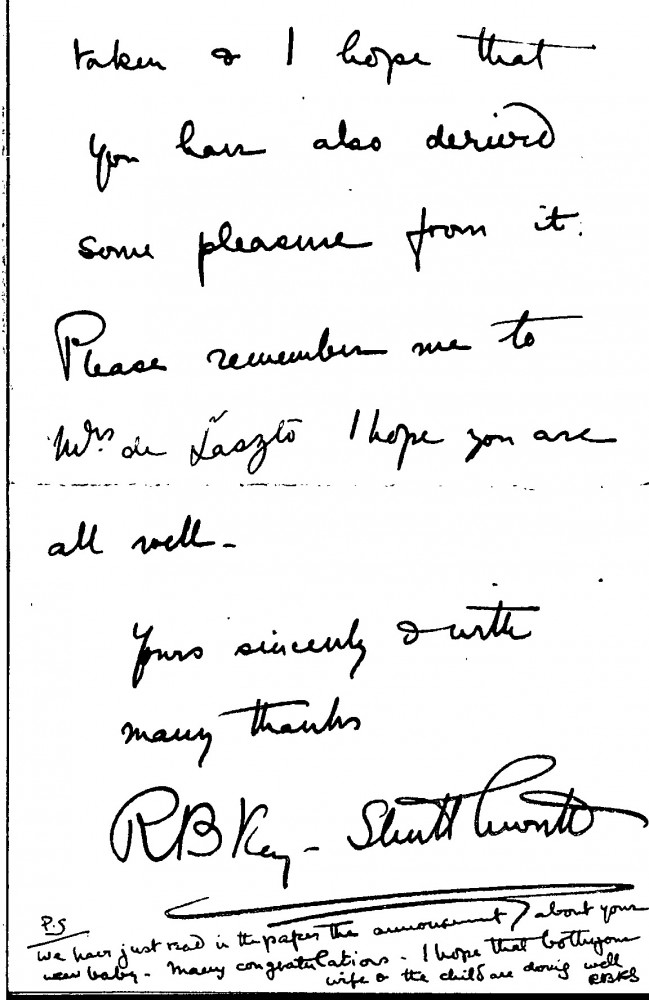 taken & I hope that
you have also derived
some pleasure from it.
Please remember me to
Mrs. de László I hope you are
all well -
Yours sincerely & with
many thanks
RB Kay-Shuttleworth
P.S
We have just read in the paper the announcement about your
new baby - Many congratulations - I hope that both your
wife & the child are doing well
RBKS